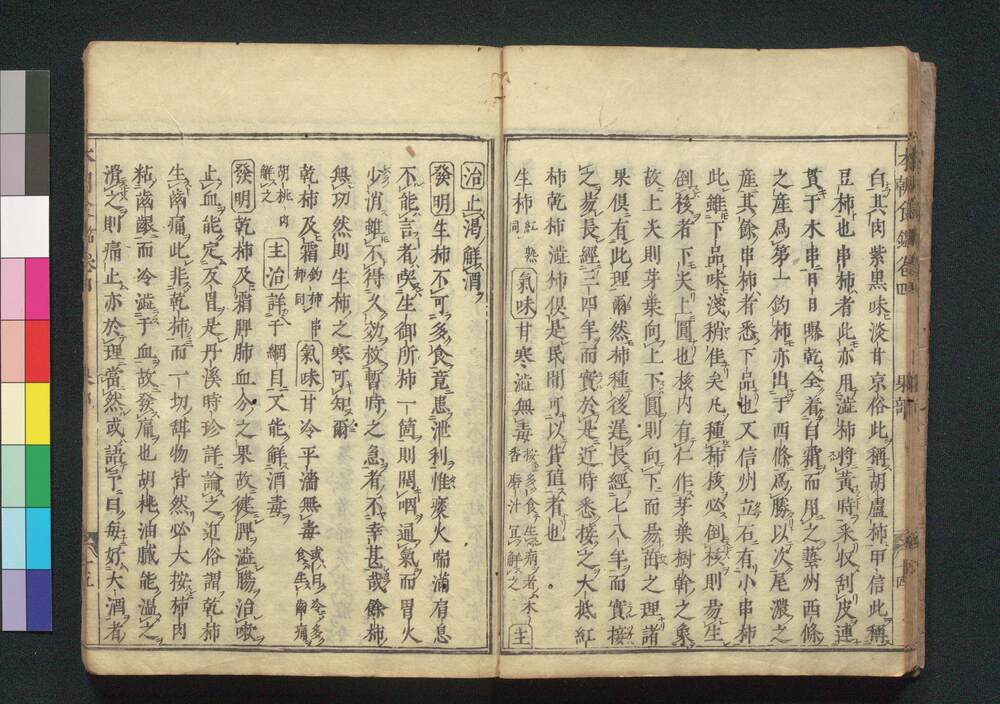 白其肉紫黒味淡甘京俗此稱胡盧柿甲信此稱
豆柿也串柿者此亦用澁柿將黄時采収刮皮連
貫于木串曰曝乾全着白霜而用之藝州西條
之産爲第一釣柿亦出于西條爲勝以次尾濃之
産其餘串柿者悉下品也又信州立石有小串柿
此雖下品味淺稍佳矣凡種柿核必倒核則易生
倒核者下尖上圓也核内有仁作芽葉樹幹之象
故上尖則芽葉向上下圓則向下而易茁之理諸
果倶有此理爾然柿種後遅長經七八年而實接
之易長經三四年而實於是近時悉接之大抵紅
柿乾柿澁柿倶是民間可以貨殖者也
生柿紅熟同氣味甘寒澁無毒按多食生病者木香磨汁冝解之主
治止渇觧酒
發明生柿不可多食竟患泄利惟痰火喘滿有息
不能言者喫生御所柿一箇則開咽通氣而胃火
少消雖不得久効救暫時之急者不幸甚哉餘柿
無功然則生柿之寒可知爾
乾柿及霜釣柿串柿同氣味甘冷平濇無毒或曰冷多食生齒痛
胡桃肉觧之主治詳于綱目又能觧酒毒
發明乾柿及霜脾肺血分之果故健脾澁腸治嗽
止血能定反胃是丹溪時珍詳論之近俗謂乾柿
生齒痛此非乾柿而一切甜物皆然必大按柿肉
粘齒齦而冷澁于血故發痛也胡桃油膩能温之
滑之則痛止亦於理當然或語予曰毎好大酒者